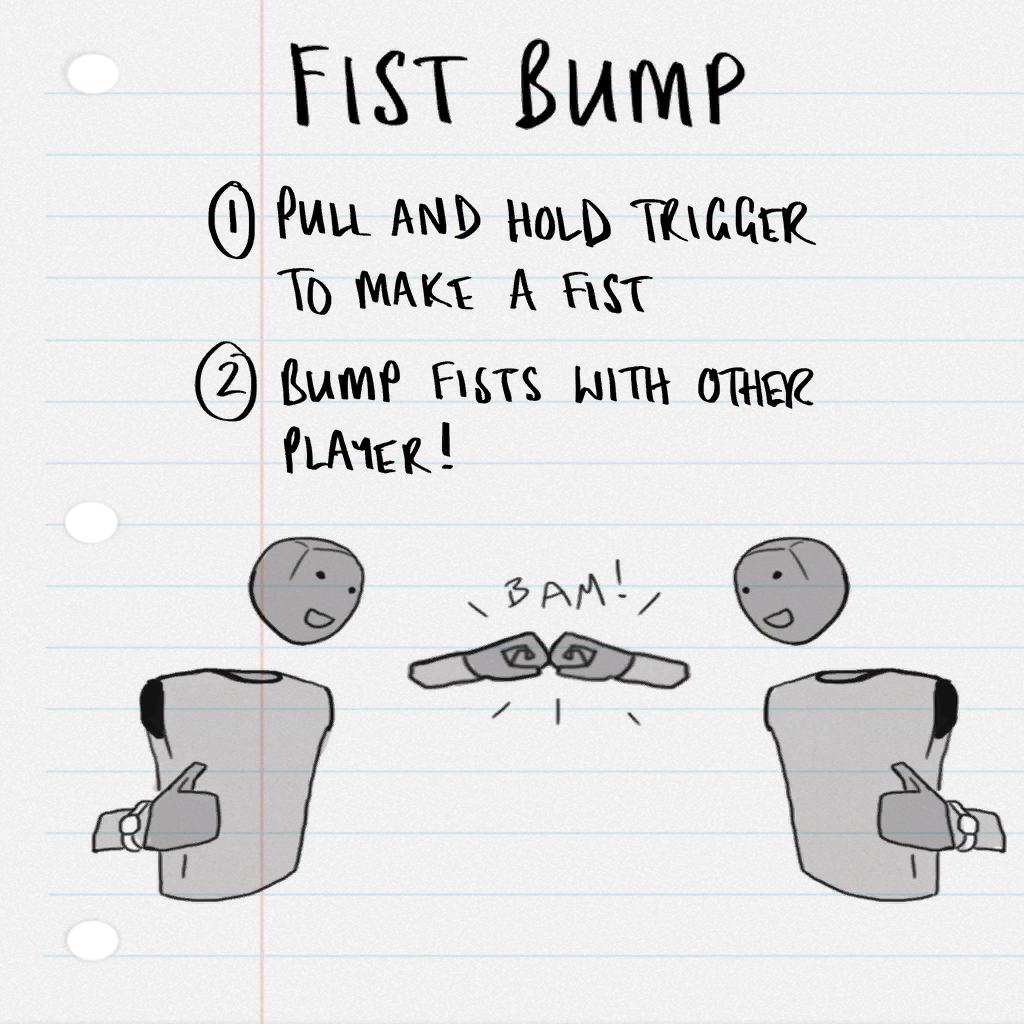 FIST BUMP
1 PULL AND HOLD TRIGGER
TO MAKE A FIST
2 BUMP FISTS WITH OTHER
PLAYER!
BAM!